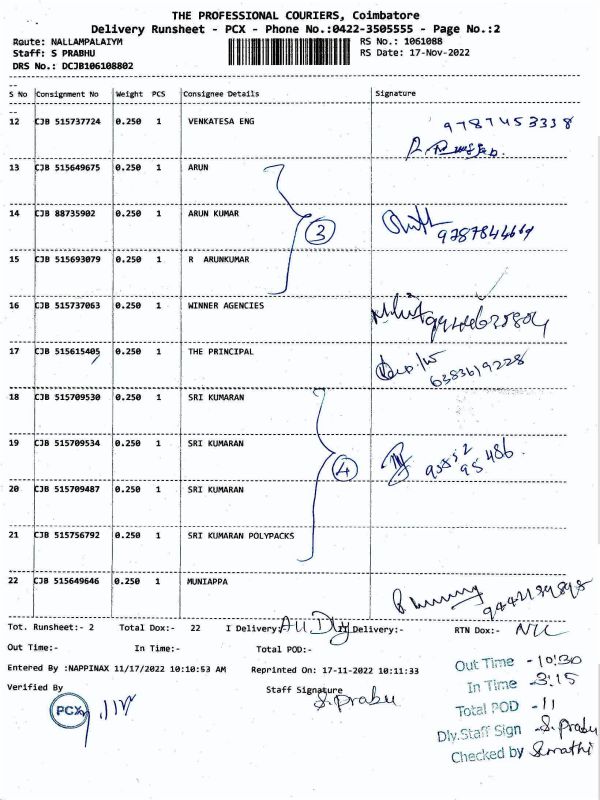 THE PROFESSIONAL COURIERS, Coimbatore
Delivery Runsheet - PCX - Phone No.:0422-3505555 - Page No.:2
Route: NALLAMPALAIYM RS No.: 1061088
Staff: S PRABHU RS Date: 17-Nov-2022
DRS No.: DCJB106108802
S No Consignment No Weight PCS Consignee Details Signature
12 CJB 515737724 0.250 1 VENKATESA ENG 9787453338
13 CJB 515649675 0.250 1 ARUN
14 CJB 88735902 0.250 1 ARUN KUMAR 3
15 CJB 515693079 0.250 1 R ARUNKUMAR
16 CJB 515737063 0.250 1 WINNER AGENCIES
17 CJB 515615405 0.250 1 THE PRINCIPAL 6383619228
18 CJB 515709530 0.250 1 SRI KUMARAN
19 CJB 515709534 0.250 1 SRI KUMARAN 4
20 CJB 515709487 0.250 1 SRI KUMARAN
21 CJB 515756792 0.250 1 SRI KUMARAN POLYPACKS
22 CJB 515649646 0.250 1 MUNIAPPA
Tot. Runsheet:- 2 Total Dox:- 22 I Delivery: All Dly Delivery:- RTN Dox:- NIL
Out Time:- In Time:- Total POD:-
Entered By :NAPPINAX 11/17/2022 10:10:53 AM Reprinted On: 17-11-2022 10:11:33
Verified By Staff Signature
PCX S. Prabu
Out Time - 10:30
In Time - 3:15
Total POD - 11
Dly.Staff Sign - S. Prabu
Checked by